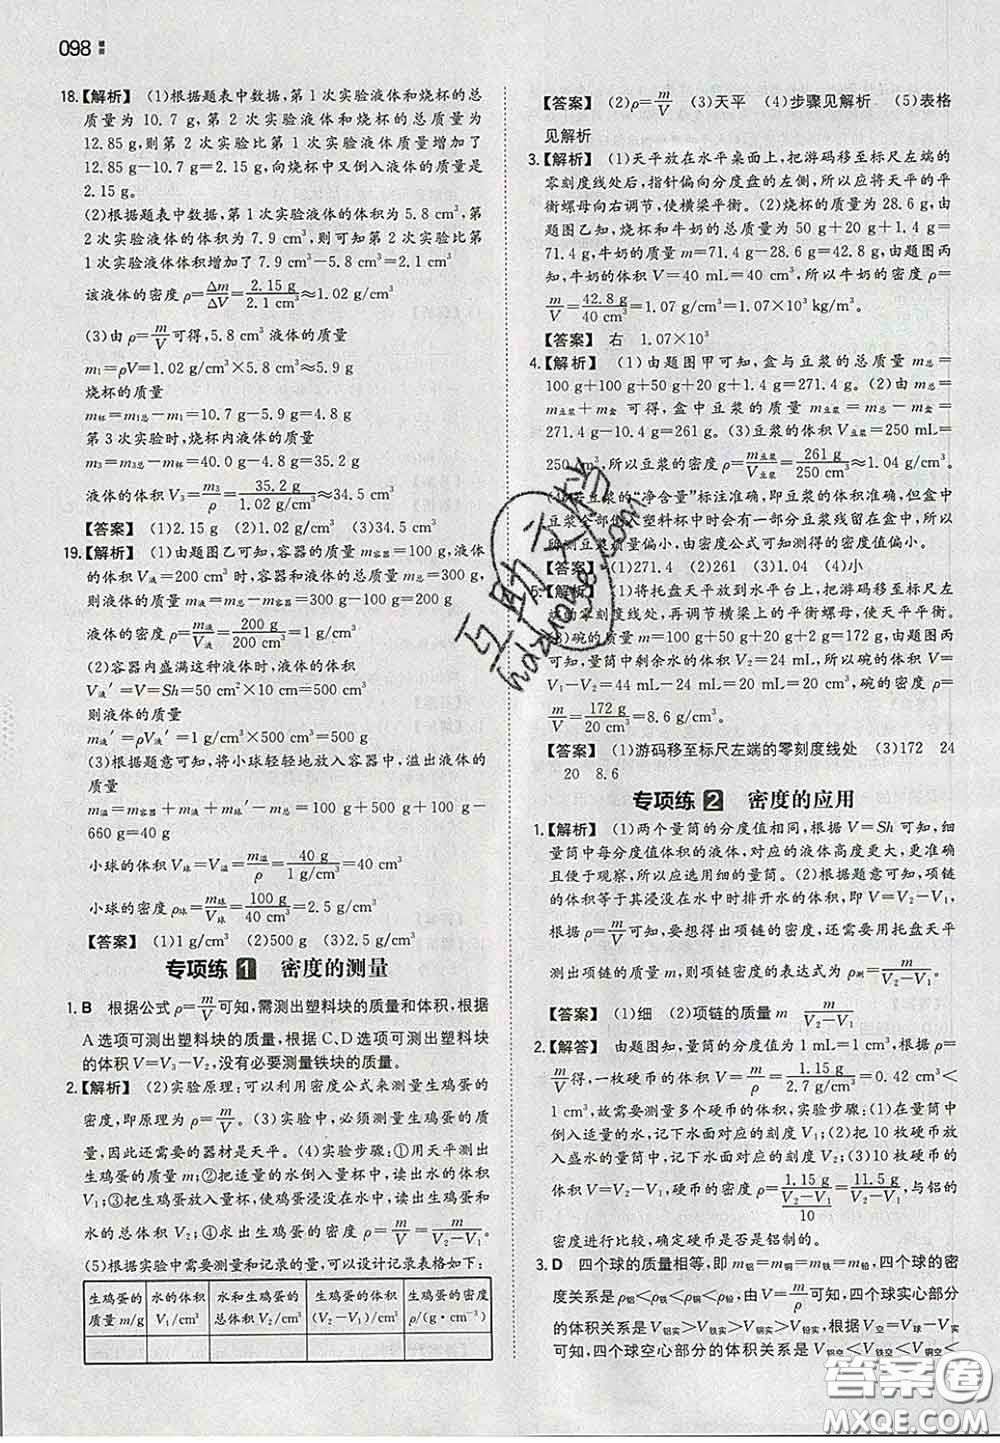 098
18.【解析】 (1)根据题表中数据,第1次实验液体和烧杯的总
质量为 10.7 g,第2次实验液体和烧杯的总质量为
12.85 g,则第2次实验比第1次实验液体质量增加了
12.85 g-10.7 g=2.15 g,向烧杯中又倒入液体的质量是
2.15 g。
(2)根据题表中数据,第1次实验液体的体积为 5.8 cm³,第
2次实验液体的体积为 7.9 cm³,则可知第2次实验比第1
次实验液体体积增加了 7.9 cm³-5.8 cm³=2.1 cm³
该液体的密度 ρ=Δm/ΔV=2.15 g/2.1 cm³≈1.02 g/cm³
(3)由 ρ=m/V可得,5.8 cm³ 液体的质量
m₁=ρV=1.02 g/cm³×5.8 cm³≈5.9 g
烧杯的质量
m杯=m₁总-m₁=10.7 g-5.9 g=4.8 g
第3次实验时,烧杯内液体的质量
m₃=m₃总-m杯=40.0 g-4.8 g=35.2 g
液体的体积 V₃=m₃/ρ=35.2 g/1.02 g/cm³≈34.5 cm³
【答案】 (1)2.15 g (2)1.02 g/cm³ (3)34.5 cm³
19.【解析】 (1)由题图乙可知,容器的质量 m容器=100 g,液体
体积 V液=200 cm³ 时,液体和容器的总质量 m总=300 g,
则液体质量为 m液=m总-m容器=300 g-100 g=200 g
液体的密度 ρ=m液/V液=200 g/200 cm³=1 g/cm³
(2)容器内盛满这种液体时,液体的体积
V液′=V=Sh=50 cm²×10 cm=500 cm³
则液体的质量
m液′=ρV液′=1 g/cm³×500 cm³=500 g
(3)根据题意可知,将小球轻轻地放入容器中,溢出液体的
质量
m溢=m容器+m液′+m球-m总=100 g+500 g+100 g-
660 g=40 g
小球的体积 V球=V溢=m溢/ρ=40 g/1 g/cm³=40 cm³
小球的密度 ρ球=m球/V球=100 g/40 cm³=2.5 g/cm³
【答案】 (1)1 g/cm³ (2)500 g (3)2.5 g/cm³
专项练 1 密度的测量
1. B 根据公式 ρ=m/V可知,需测出塑料块的质量和体积,根据
A选项可测出塑料块的质量,根据C、D选项可测出塑料块
的体积 V=V₃-V₂,没有必要测量铁块的质量。
2.【解析】 (2)实验原理:可以利用密度公式来测量生鸡蛋的
密度,即原理为 ρ=m/V。(3)实验中,必须测量生鸡蛋的质
量,因此还需要的器材是天平。(4)实验步骤:①用天平测出
生鸡蛋的质量 m;②把适量的水倒入量杯中,读出水的体积
V₁;③把生鸡蛋放入量杯,使鸡蛋浸没在水中,读出生鸡蛋和
水的总体积 V₂;④求出生鸡蛋的密度 ρ=m/V=m/(V₂-V₁)。
(5)根据实验中需要测量和记录的量,可以设计记录表格如下:
生鸡蛋的 水的体积 水和生鸡蛋的 生鸡蛋的体积 生鸡蛋的密度
质量 m/g V₁/cm³ 总体积 V₂/cm³ (V₂-V₁)/cm³ ρ/(g·cm⁻³)
【答案】 (2)ρ=m/V (3)天平 (4)步骤见解析 (5)表格
见解析
3.【解析】 (1)天平放在水平桌面上,把游码移至标尺左端的
零刻度线处后,指针偏向分度盘的左侧,所以应将天平的平
衡螺母向右调节,使横梁平衡。(2)烧杯的质量为 28.6 g,由
题图乙知,烧杯和牛奶的总质量为 50 g+20 g+1.4 g=
71.4 g,牛奶的质量 m=71.4 g-28.6 g=42.8 g,由题图丙
知,牛奶的体积 V=40 mL=40 cm³,所以牛奶的密度 ρ=
m/V=42.8 g/40 cm³=1.07 g/cm³=1.07×10³ kg/m³。
【答案】 右 1.07×10³
4.【解析】 (1)由题图甲可知,盒与豆浆的总质量 m总=
100 g+100 g+50 g+20 g+1.4 g=271.4 g。(2)由 m总=
m豆浆+m盒 可得,盒中豆浆的质量 m豆浆=m总-m盒=
271.4 g-10.4 g=261 g。(3)豆浆的体积 V豆浆=250 mL=
250 cm³,所以豆浆的密度 ρ=m豆浆/V豆浆=261 g/250 cm³≈1.04 g/cm³。
(4)若豆浆的“净含量”标注准确,即豆浆的体积准确,但盒中
豆浆全部倒入塑料杯中时会有一部分豆浆残留在盒中,故
所测豆浆质量偏小,由密度公式可知测得的密度值偏小。
【答案】 (1)271.4 (2)261 (3)1.04 (4)小
5.【解析】 (1)将托盘天平放到水平台上,把游码移至标尺左
端的零刻度线处,再调节横梁上的平衡螺母,使天平平衡。
(3)碗的质量 m=100 g+50 g+20 g+2 g=172 g,由题图
可知,量筒中剩余水的体积 V₂=24 mL,所以,碗的体积 V=
V₁-V₂=44 mL-24 mL=20 mL=20 cm³,碗的密度 ρ=
m/V=172 g/20 cm³=8.6 g/cm³。
【答案】 (1)游码移至标尺左端的零刻度线处 (3)172 24
20 8.6
专项练 2 密度的应用
1.【解析】 (1)两个量筒的分度值相同,根据 V=Sh 可知,细
量筒中每分度值体积的液体,对应的液体高度更大,更准确
且便于观察,所以应选用细的量筒。(2)根据题意可知,项链
的体积等于其浸没在水中时排开水的体积,即 V=V₂-V₁,
根据 ρ=m/V可知,要想得出项链的密度,还需要用托盘天平
测出项链的质量 m,则项链密度的表达式为 ρ=m/(V₂-V₁)。
【答案】 (1)细 (2)项链的质量 m m/(V₂-V₁)
2.【解答】 由题图知,量筒的分度值为 1 mL=1 cm³,由 ρ=
m/V得,一枚硬币的体积 V=m/ρ=1.15 g/2.7 g/cm³≈0.42 cm³<
1 cm³,故需要测量多个硬币的体积,实验步骤:(1)在量筒中
倒入适量的水,记下水面对应的刻度 V₁;(2)把 10 枚硬币放
入盛水的量筒中,记下水面对应的刻度 V₂;(3)10 枚硬币的
体积 V=V₂-V₁,硬币的密度 ρ=1.15 g/((V₂-V₁)/10)=11.5 g/(V₂-V₁),与铝的
密度进行比较,确定硬币是否是铝制的。
3. D 四个球的质量相等,即 m铝=m铜=m铁=m铅,四个球的密
度关系是 ρ铝<ρ铁<ρ铜<ρ铅,由 V=m/ρ可知,四个球实心部分
的体积关系是 V铝实>V铁实>V铜实>V铅实,根据 V空=V球-V实
可知,四个球空心部分的体积关系是 V铝空<V铁空<V铜空<
互助文档
hdzuoye.com
答案圈
MXQE.COM